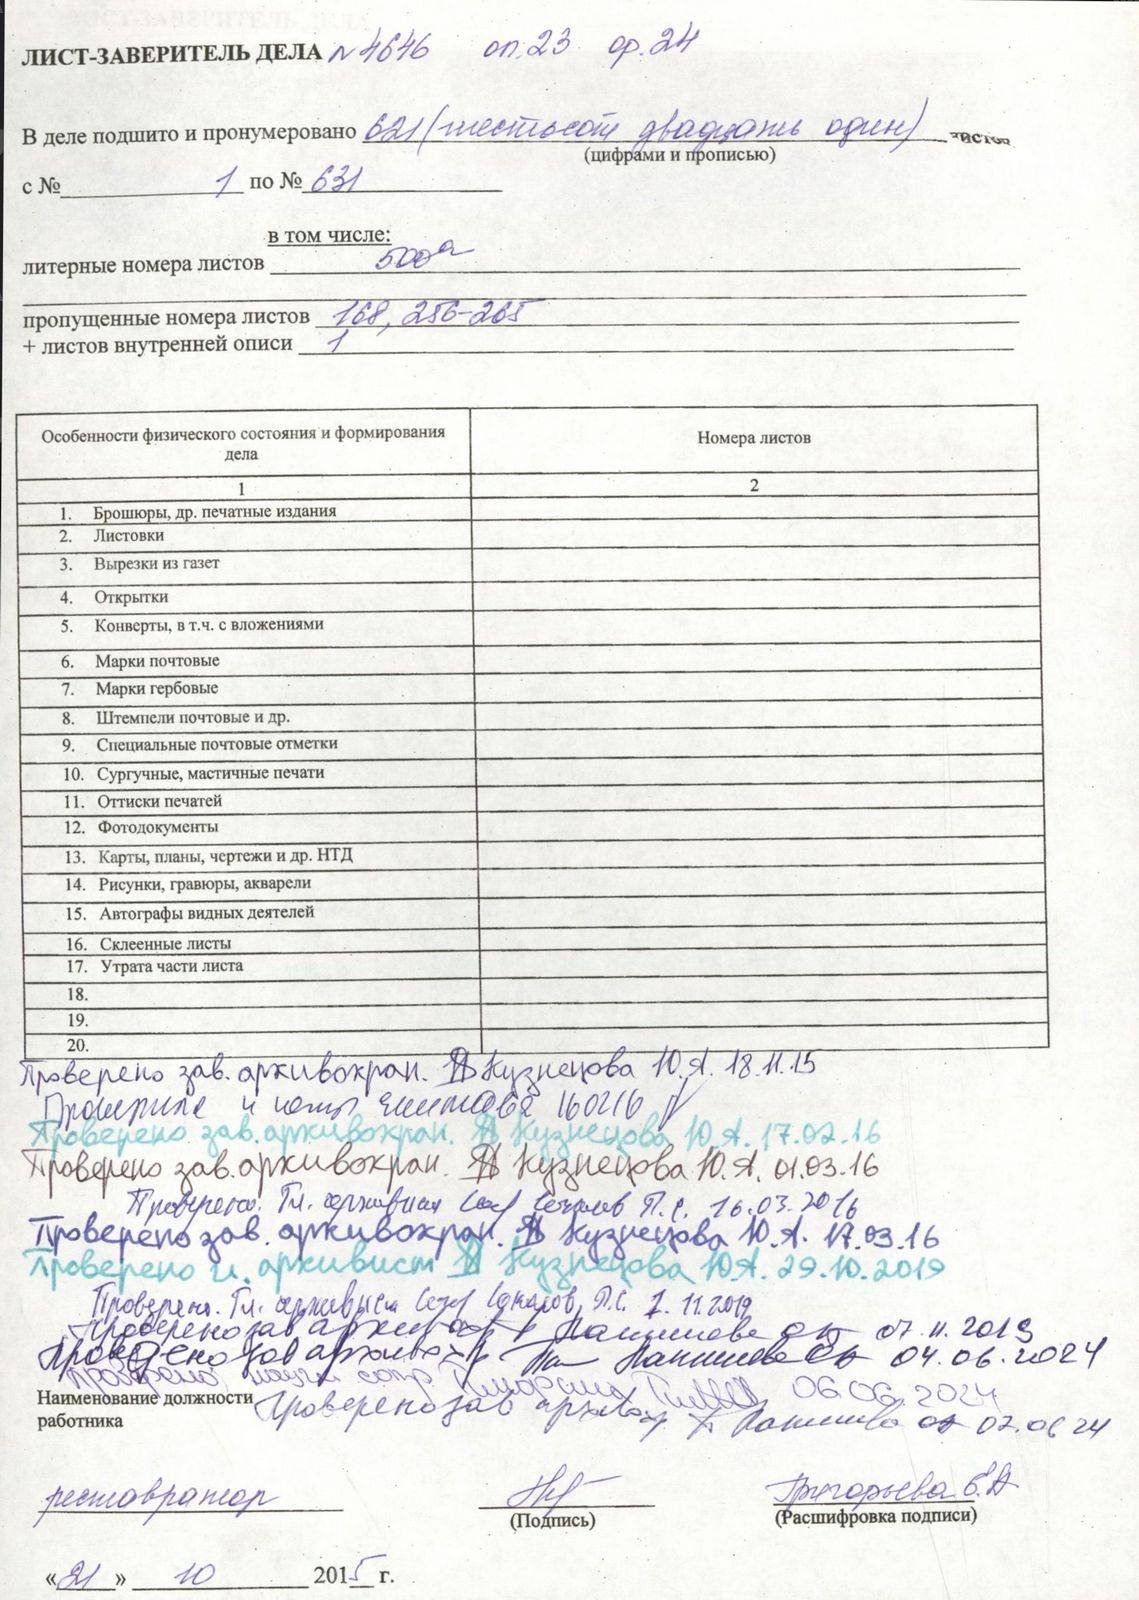 ЛИСТ-ЗАВЕРИТЕЛЬ ДЕЛА N 4646 оп.23 ор.24
В деле подшито и пронумеровано 621 (шестьсот двадцать один) листов
(цифрами и прописью)
с № 1 по № 631
в том числе:
литерные номера листов 500а
пропущенные номера листов 168, 256-265
+ листов внутренней описи 1
Особенности физического состояния и формирования дела Номера листов
1 2
1. Брошюры, др. печатные издания
2. Листовки
3. Вырезки из газет
4. Открытки
5. Конверты, в т.ч. с вложениями
6. Марки почтовые
7. Марки гербовые
8. Штемпели почтовые и др.
9. Специальные почтовые отметки
10. Сургучные, мастичные печати
11. Оттиски печатей
12. Фотодокументы
13. Карты, планы, чертежи и др. НТД
14. Рисунки, гравюры, акварели
15. Автографы видных деятелей
16. Склеенные листы
17. Утрата части листа
18.
19.
20.
Проверено зав. архивохран. Кузнецова Ю.А. 18.11.15
160216
Проверено зав. архивохран. Кузнецова Ю.А. 17.02.16
Проверено зав. архивохран. Кузнецова Ю.А. 01.03.16
Проверено. Гл. архивист П.С. 16.03.2016
Проверено зав. архивохран. Кузнецова Ю.А. 17.03.16
Проверено гл. архивист Кузнецова Ю.А. 29.10.2019
Проверено. Гл. архивист П.С. 7.11.2019
Проверено зав архивохр 07.11.2019
Проверено зав архивохр. 04.06.2024
Проверено научн сотр. 06 06 2024
Наименование должности
работника
Проверено зав архивохр 07.06 24
реставратор Григорьева Е.А
(Подпись) (Расшифровка подписи)
«21» 10 2015 г.